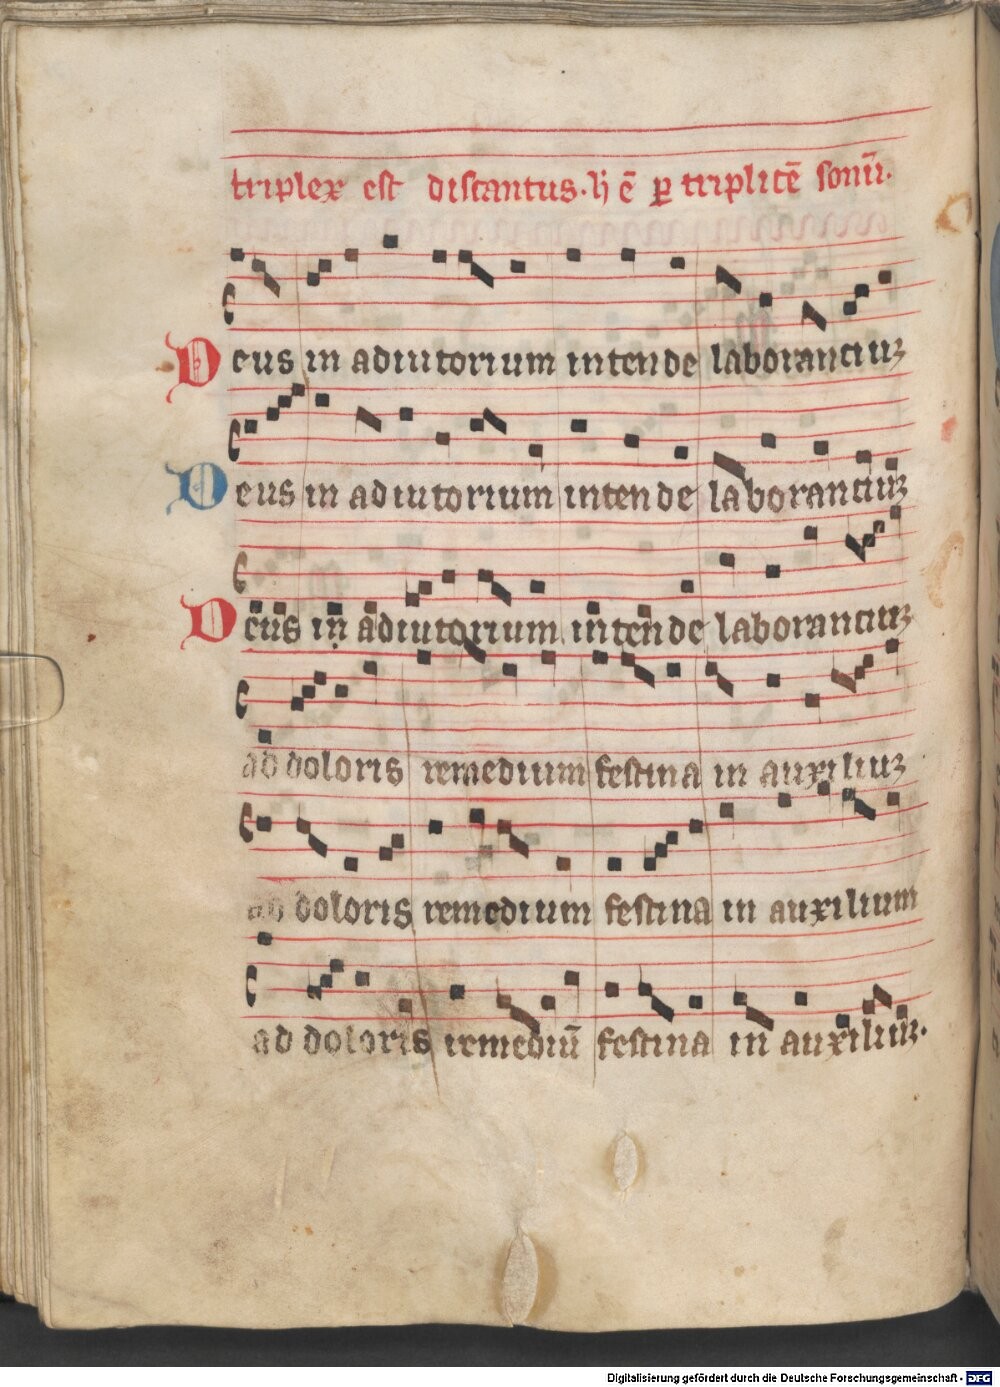 triplex est discantus. h̄ ē ꝑ triplicē sonū.
Deus in adiutorium intende laborantiuꝫ
Deus in adiutorium intende laborantiuꝫ
Deus in adiutorium intende laborantiuꝫ
ad doloris remedium festina in auxiliuꝫ
ad doloris remedium festina in auxilium
ad doloris remediū festina in auxiliuꝫ.
Digitalisierung gefördert durch die Deutsche Forschungsgemeinschaft - DFG